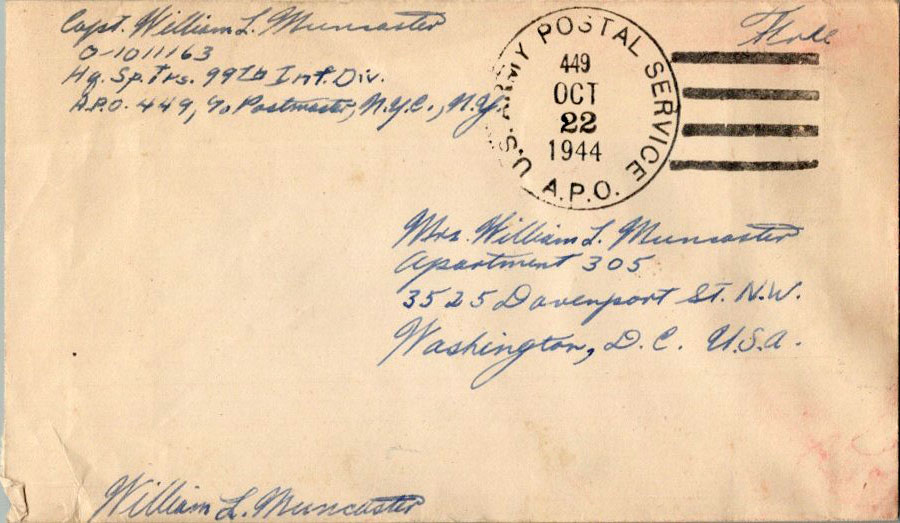 Capt. William L. Muncaster
O-1011163
Hq. Sp. Trs. 99th Inf. Div.
A.P.O. 449, c/o Postmaster, N.Y.C., N.Y.
Free
U.S. ARMY POSTAL SERVICE
449
OCT
22
1944
A.P.O.
Mrs. William L. Muncaster
Apartment 305
3525 Davenport St. N.W.
Washington, D.C. U.S.A.
William L. Muncaster